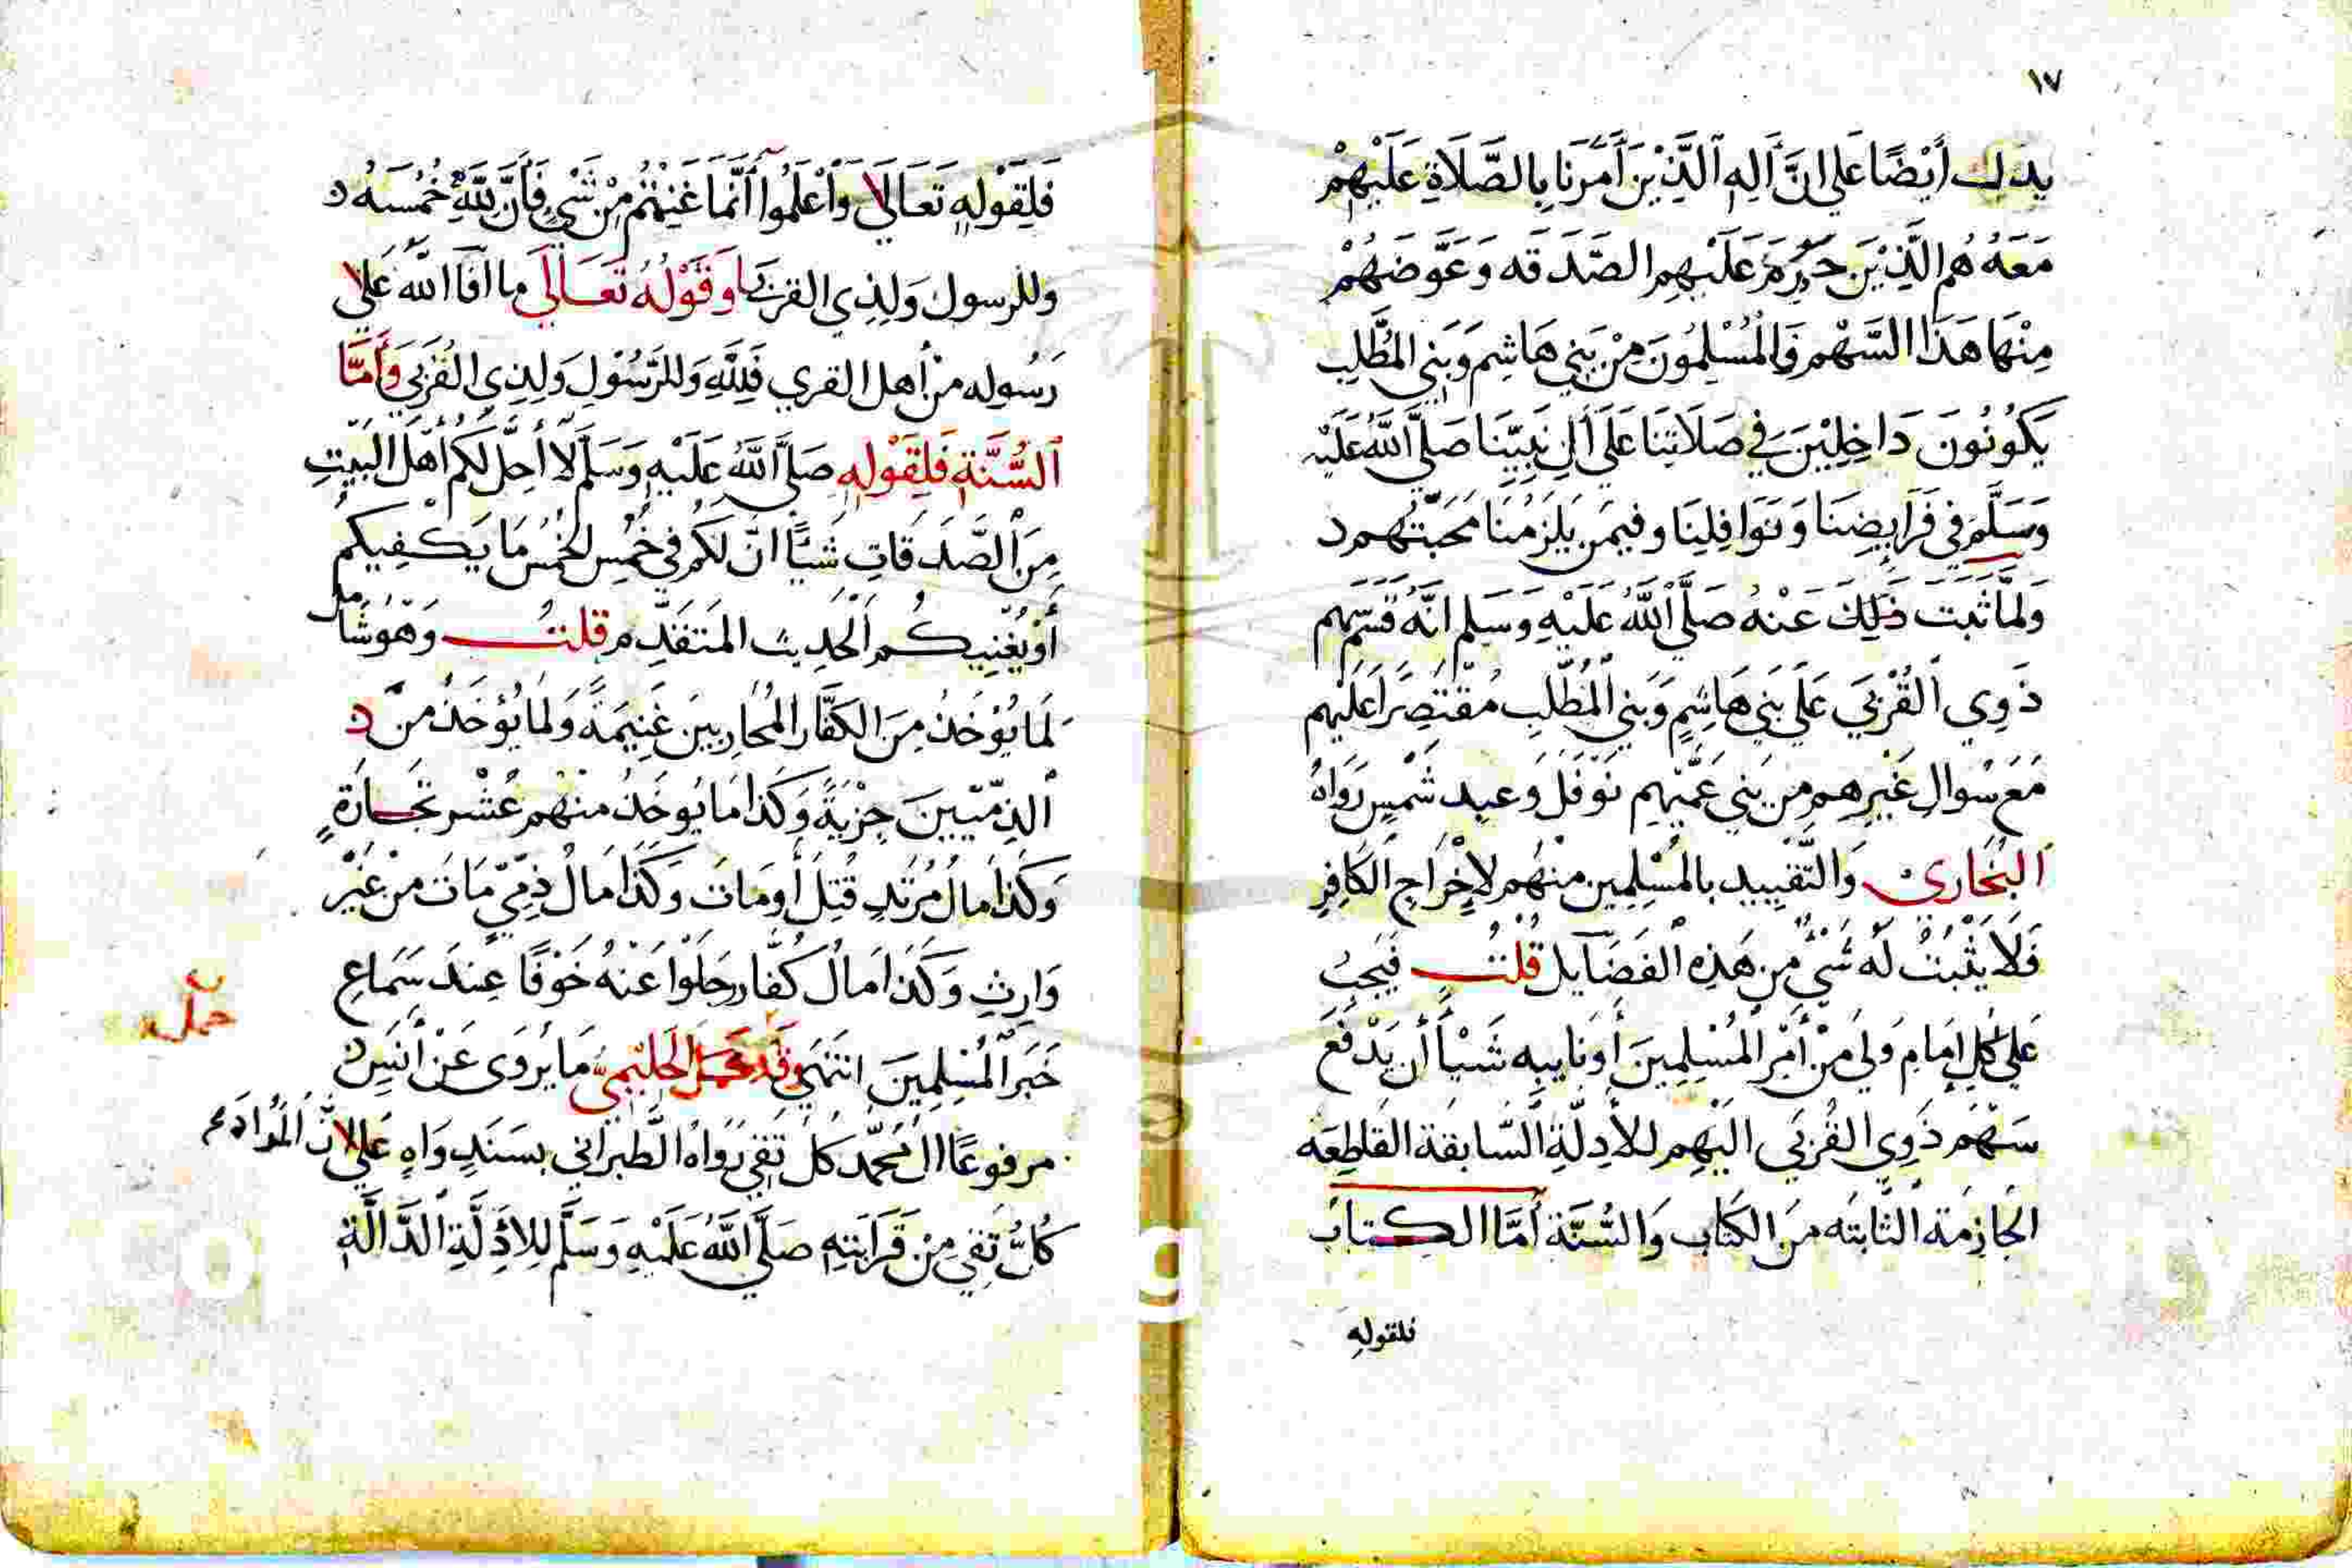 ١٧
يدلك أَيْضًا عَلي انَّ اَلِهِ الَّذِيْنَ اَمَرَنَا بِالصَّلَاةِ عَلَيْهِمْ
مَعَهُ هُمِ الَّذِيْنَ حَرَّمَ عَلَيْهِمِ الصَّدَقه وَعَوَّضَهُمْ
مِنْهَا هَذَا السَّهْمِ فَالمُسْلِمُونَ مِنْ بَنِي هَاشِم وَبَنِي المُطَّلِبِ
يَكُونُونَ دَاخِلِيْنَ فِي صَلَاتِنَا عَلَي اَلِ نَبِيِّنَا صَلَّي اللَّهُ عَلَيْهِ
وَسَلَّمَ فِي فَرَايِضِنَا وَنَوَافِلِنَا وفيمَن يَلزَمُنَا مَحَبَّتُهم
وَلمَّا ثَبَتَ ذَلِكَ عَنْهُ صَلَّي اللَّهُ عَلَيْهِ وَسَلم انَّهُ قسَم سهم
ذَوِي القُرْبَي عَلَي بَنِي هَاشِمٍ وَبَنِي المُطَّلِبِ مُقْتَصِرًا عَلَيْهِم
مَعَ سُوَالِ غَيْرِهِم مِن بَنِي عَمِّهِم نَوْفَل وَعبدِ شَمْسٍ رَوَاهُ
البُخَارِي وَالتَّقْيِيد بالمُسْلِمِين منْهُم لاِخْرَاجِ الكَافِرِ
فَلَا يَثْبُتُ لَهُ شَيْءٌ مِن هَذِه الفَضَايل قُلْتُ فَيَجِبُ
عَلي كُلِ اِمَامٍ وَلِيَ مِنْ أَمْرِ المُسْلِمِينَ أَونَايبِه شَيْأً أَن يَدْفَعَ
سَهْمَ ذَوِي القُرْبَى اليْهِم للأدِلَّةِ السَّابقَة القَاطِعَه
الجَازِمَة الثَّابِتَه مِنَ الكِتَابِ وَالسُّنَّة أَمَّا الكِتَابُ
فلقولهِ
فَلِقَوْلِهِ تَعَالَي وَاَعْلَمُوا أَنَّمَا غَنِمْتُمْ مِنْ شَيْءٍ فَأَنَّ لِلَّهِ خُمُسَهُ
وللرسول وَلِذِي القربَي وَقَوْلُهُ تَعَالَى ما افَآ اللّهُ عَلى
رَسُوله مِنْ أهل القري فَلِلَّهِ وَللرَّسُوْلِ وَلِذِي القُرْبَي وَأَمَّا
السُّنَّةِ فَلِقَوْلِهِ صَلَّي اللَّهُ عَلَيْهِ وَسَلَّم لَا أُحِلُّ لَكُم أَهْلَ البَيْتِ
مِنَ الصَّدَقَاتِ شَيْأً انَّ لَكُم فِي خُمُسِ الخُمُسِ مَا يَكْفِيكُم
أَوْ يُغْنِيكُم الحَدِيث المَتقَدِّم قلتُ وَهْوَ شَامل
لمَا يُوْخَذُ مِنَ الكفَّار المُحَارِبِينَ غَنِيمَةً وَلمَا يُؤخَذُ من
الذِمِّيّينَ جِزْيَةً وَكَذَا مَا يُوخَذُ مِنْهُم عُشْر تجَارَةٍ
وَكذَا مالُ مُرْتَدٍ قُتِلَ أَومَاتَ وَكَذَا مَالُ ذِمِّيٍّ مَاتَ مِنْ غَيْر
وَارِثٍ وَكَذَا مَالُ كُفَّار جَلَوْا عَنْهُ خَوْفًا عِندَ سَمَاعِ
خَبَرِ المُسْلِمِينَ انتَهَي وَقَد حَمَل الحَلِيْمِيُّ مَا يُرْوَى عَنْ أَنَسٍ
حمل
مرفوعًا الُ مُحمَّد كلُ تَقِي رَوَاهُ الطَّبرَاني بِسَنَدٍ وَاهٍ عَلي انَّ المُرَادَ
كُلُّ تَقِي مِنْ قَرَابَتِهِ صَلَّي اللَّهُ عَلَيْهِ وَسَلَّم لِلاَدِلَّةِ الدَّالَّة